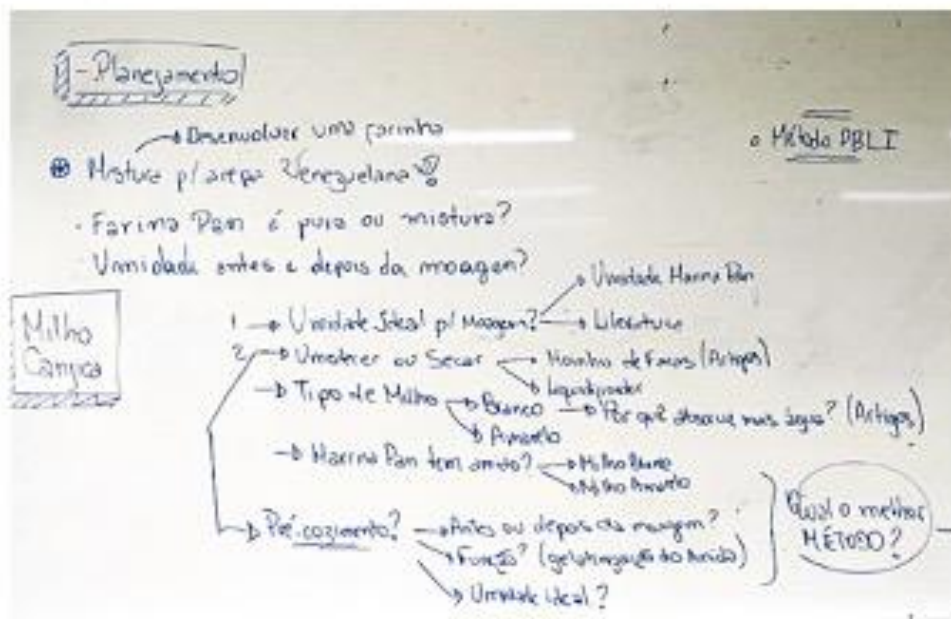 - Planejamento
→ Desenvolver uma farinha
Mistura p/ arepa Venezuelana
• Método PBLI
· Farina Pan é pura ou mistura?
Umidade antes e depois da moagem?
Milho
Canjica
Umidade Harina Pan
1 → Umidade Ideal p/ Moagem? → Literatura
2 → Umedecer ou Secar → Moinho de Facas (Artigos)
→ Liquidificador
→ Tipo de Milho → Branco → Por quê absorve mais água? (Artigos)
→ Amarelo
→ Harina Pan tem amido? → Milho Branco
→ Milho Amarelo
→ Pré-cozimento? → Antes ou depois da moagem?
→ Função? (gelatinização do Amido)
→ Umidade ideal?
Qual o melhor
MÉTODO?